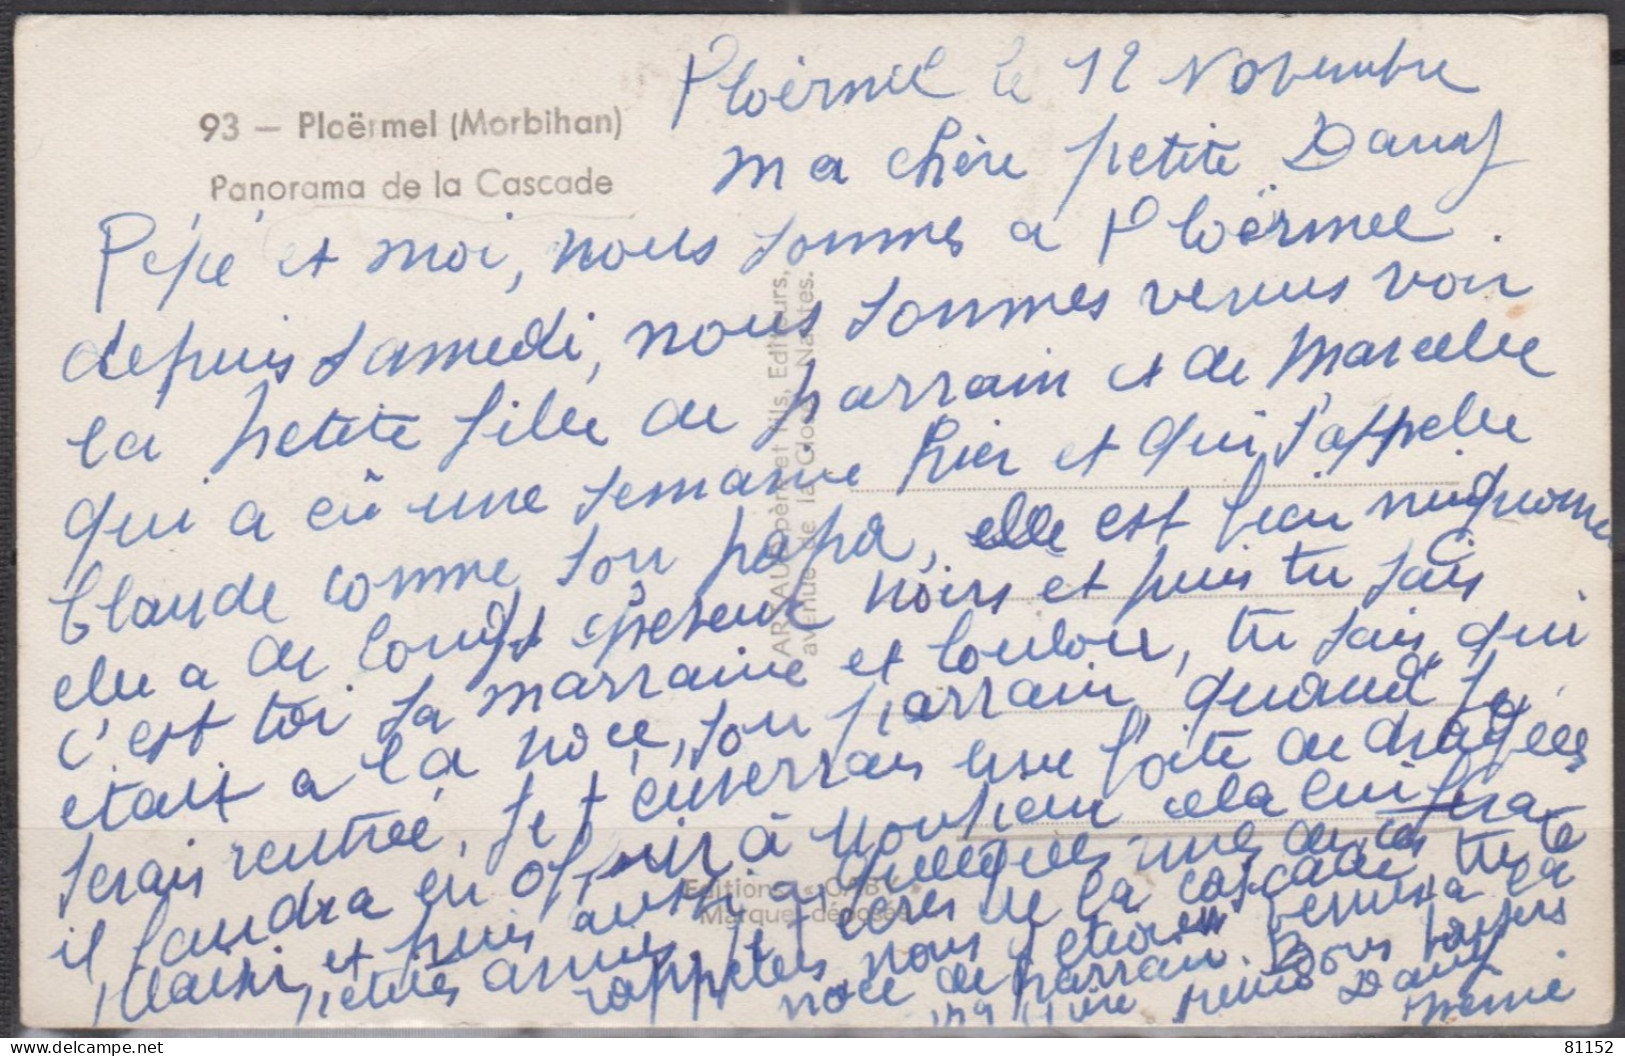 93 — Ploërmel (Morbihan)
Panorama de la Cascade
Ploërmel le 12 Novembre
Ma chère petite Dany
Pépé et moi, nous sommes a Ploërmel.
depuis samedi, nous sommes venus voir
la petite fille de parrain et de Marcelle
qui a eû une semaine hier et qui s'appelle
Claude comme son papa, elle est bien mignonne
elle a de longs cheveux noirs et puis tu sais
c'est toi sa marraine et Loulou, tu sais qui
était a la noce, son parrain, quand je
serais rentrée, je t'enverrais une boite de dragées
il faudra en offrir à Monsieur cela lui fera
plaisir, et puis aussi a quelques unes de tes
petites amies, je
rappelles nous étions
de la cascade tu te
noce de parrain.
Bons baisers
Dany
mémé
ARNAUD père et fils, Editeurs,
avenue de la Close, Nantes.
Editions « GABY »
Marque déposée
81152